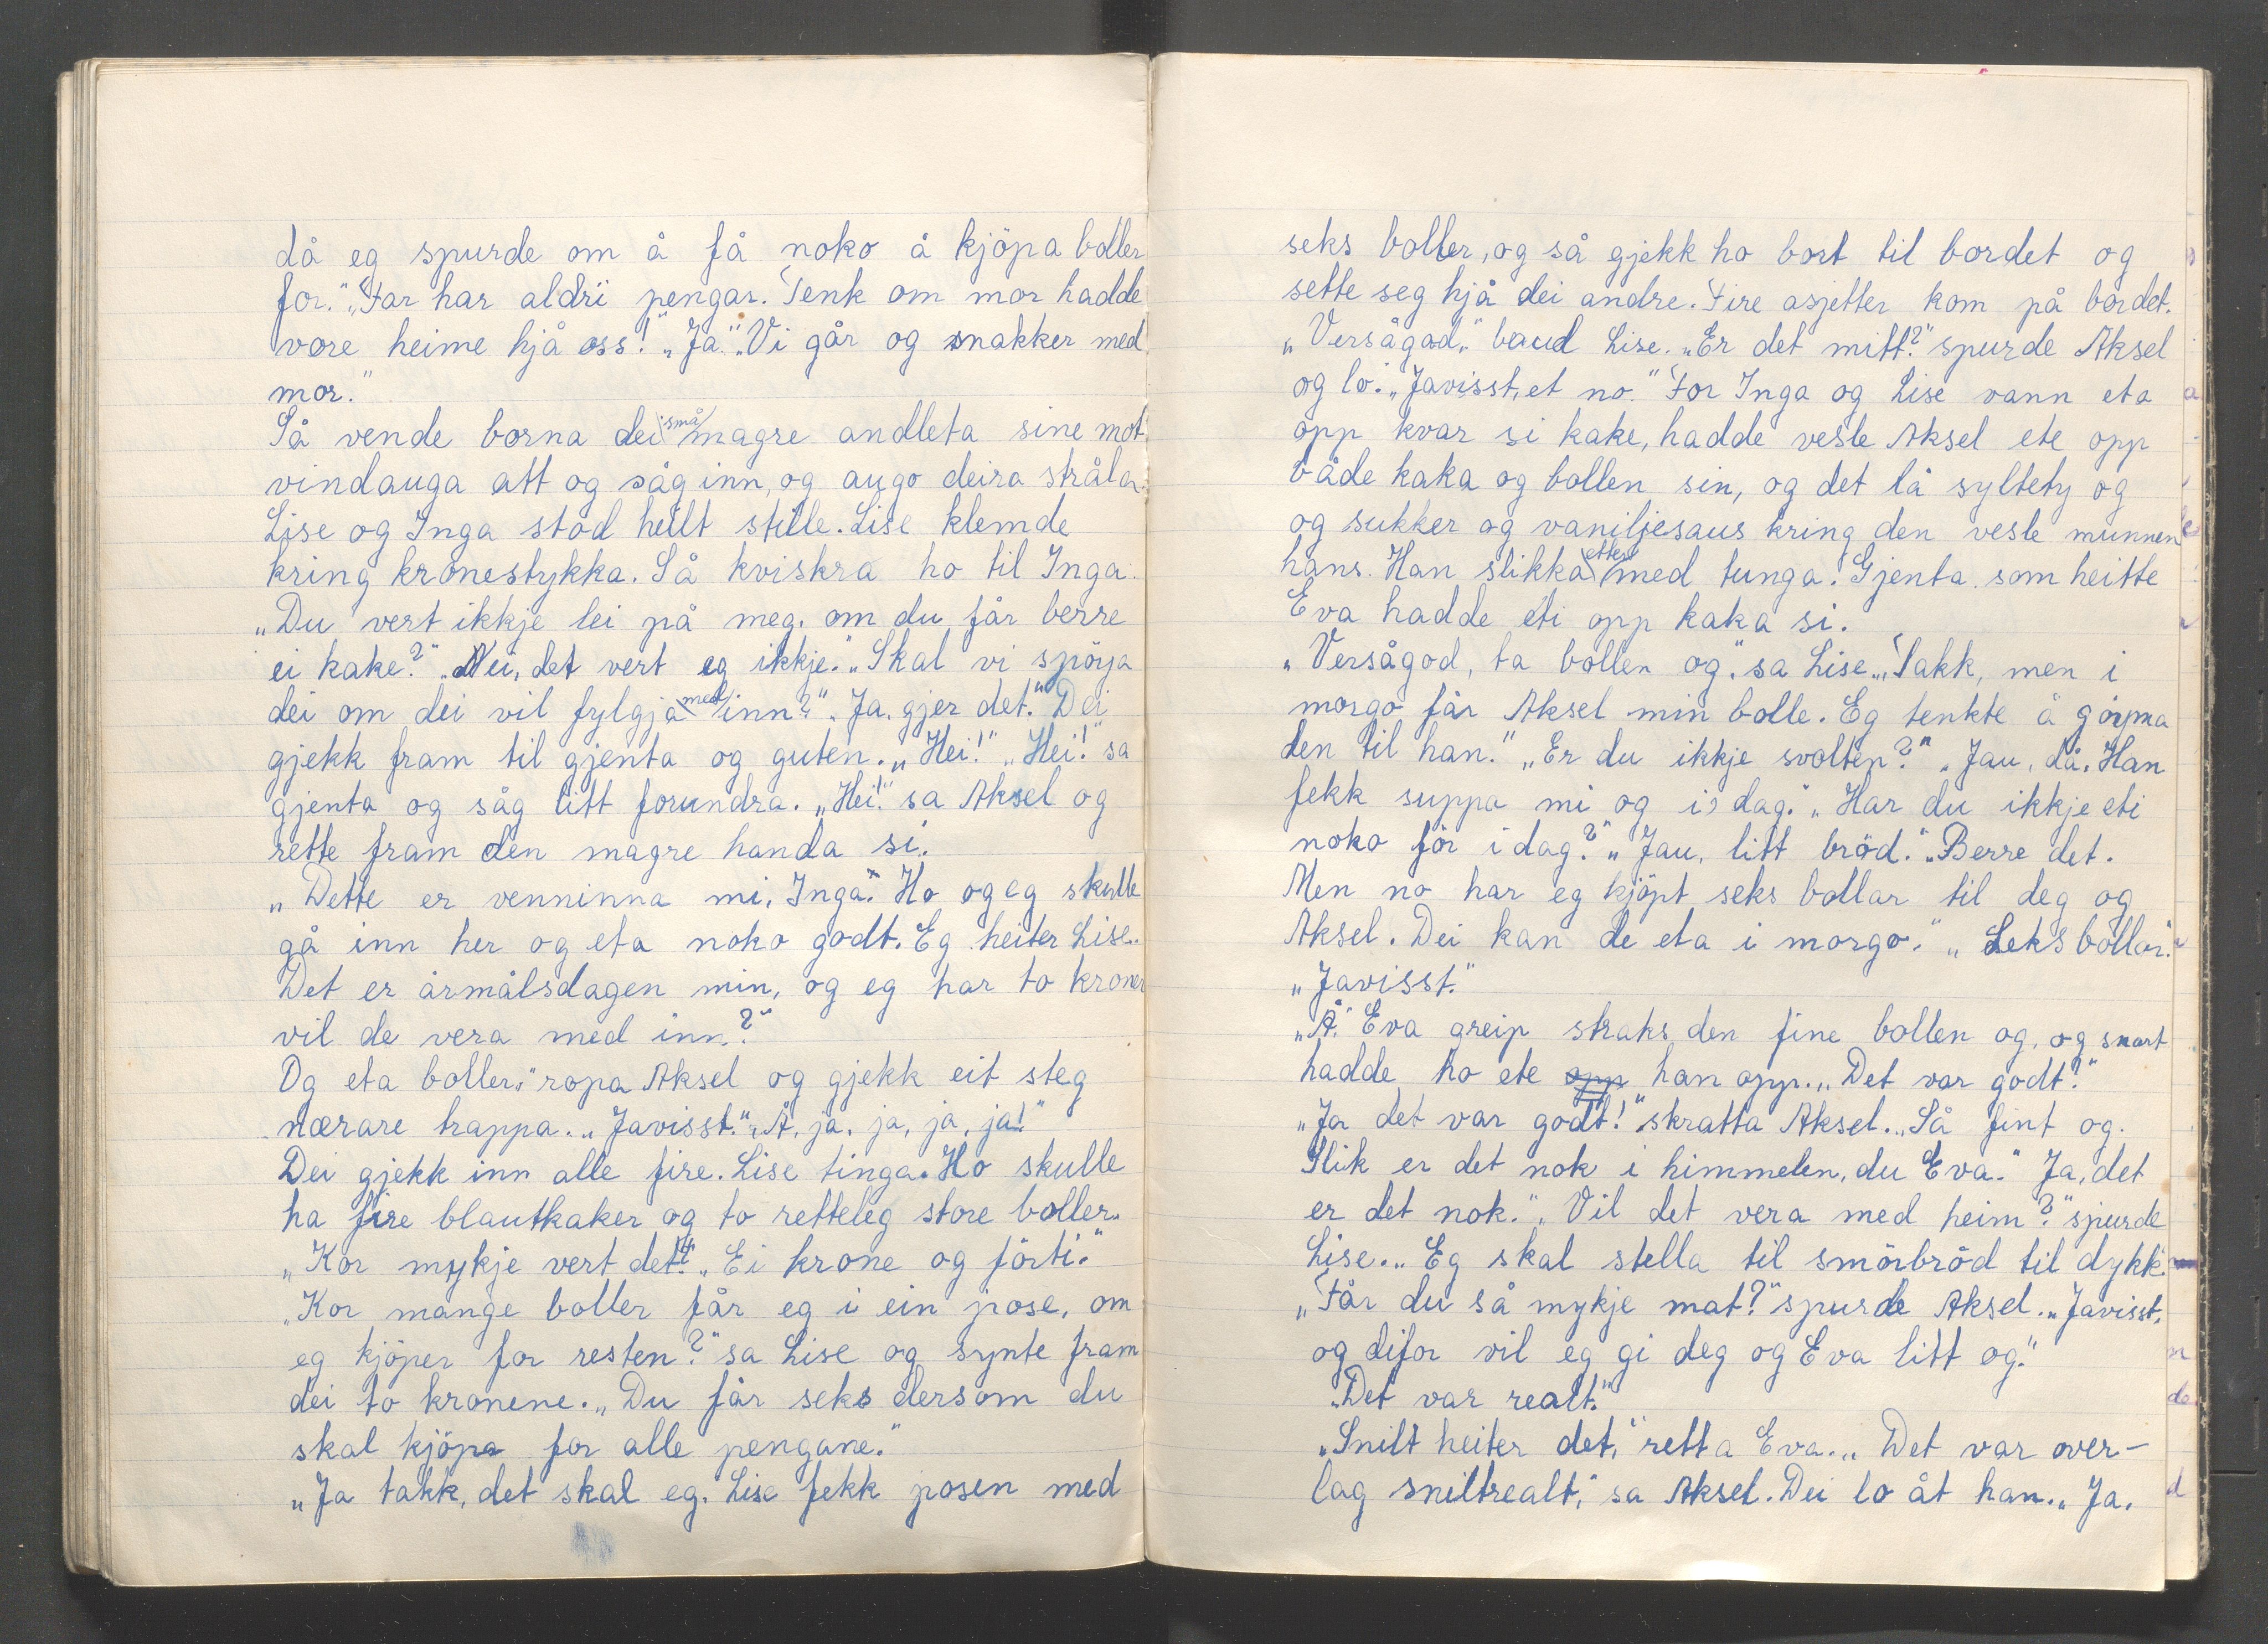 då eg spurde om å få noko å kjöpa boller
for." „Far har aldri pengar. Tenk om mor hadde
vore heime hjå oss!" „Ja." „Vi går og snakker med
mor."
Så vende borna dei små magre andleta sine mot
vindauga att og såg inn, og augo deira stråla.
Lise og Inga stod heilt stille. Lise klemde
kring kronestykka. Så kviskra ho til Inga.
„Du vert ikkje lei på meg, om du får berre
ei kake?" „Nei, det vert eg ikkje." „Skal vi spörja
dei om dei vil fylgja med inn?" „Ja, gjer det." Dei
gjekk fram til gjenta og guten. „Hei!" „Hei!" sa
gjenta og såg litt forundra. „Hei!" sa Aksel og
rette fram den magre handa si.
„Dette er venninna mi, Inga. Ho og eg skulle
gå inn her og eta noko godt. Eg heiter Lise.
Det er årmålsdagen min, og eg har to kroner
vil de vera med inn?"
Og eta boller," ropa Aksel og gjekk eit steg
nærare trappa. „Javisst." „Å, ja, ja, ja, ja!"
Dei gjekk inn alle fire. Lise tinga. Ho skulle
ha fire blautkaker og to retteleg store boller.
„Kor mykje vert det?" „Ei krone ogförti."
„Kor mange boller får eg i ein pose, om
eg kjöper for resten?" sa Lise og synte fram
dei to kronene. „Du får seks dersom du
skal kjöpa for alle pengane."
„Ja takk, det skal eg. Lise fekk posen med
seks boller, og så gjekk ho bort til bordet og
sette seg hjå dei andre. Fire asjetter kom på bordet.
„Versågod," baud Lise. „Er det mitt?" spurde Aksel
og lo. „Javisst, et no." För Inga og Lise vann eta
opp kvar si kake, hadde vesle Aksel ete opp
både kaka og bollen sin, og det lå syltety og
og sukker og vaniljesaus kring den vesle munnen
hans. Han slikka etter med tunga. Gjenta som heitte
Eva hadde eti opp kaka si.
„Versågod, ta bollen og," sa Lise. „Takk, men i
morgo får Aksel min bolle. Eg tenkte å göyma
den til han." „Er du ikkje svolten?" „Jau, då. Han
fekk suppa mi og i dag." „Har du ikkje eti
noko för i dag?" „Jau, litt bröd." „Berre det.
Men no har eg kjöpt seks bollar til deg og
Aksel. Dei kan de eta i morgo." „Seks bollar."
„Javisst."
„Å." Eva greip straks den fine bollen og, og snart
hadde ho ete opp han opp. „Det var godt."
„Ja det var godt!" skratta Aksel. „Så fint og.
Slik er det nok i himmelen, du Eva." Ja, det
er det nok." „Vil det vera med heim?" spurde
Lise. „Eg skal stella til smörbröd til dykk."
„Får du så mykje mat?" spurde Aksel. „Javisst,
og difor vil eg gi deg og Eva litt og."
„Det var realt."
„Snilt heiter det," retta Eva. „Det var over-
lag sniltrealt," sa Aksel. Dei lo åt han. „Ja.